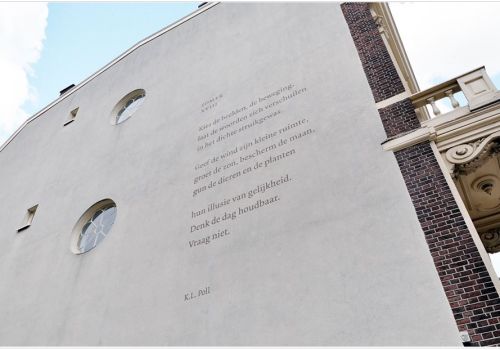 ZOMER
XVIII
Kies de beelden, de beweging,
laat de woorden zich verschuilen
in het dichte struikgewas.
Geef de wind zijn kleine ruimte,
groet de zon, bescherm de maan,
gun de dieren en de planten
hun illusie van gelijkheid.
Denk de dag houdbaar.
Vraag niet.
K.L. Poll